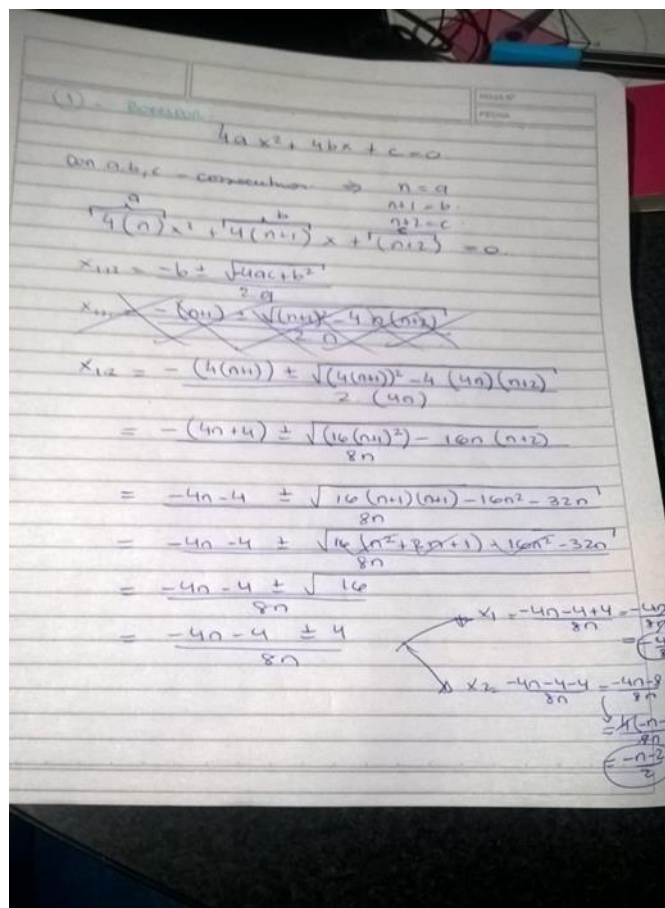 HOJA Nº
FECHA
(1) -
4ax² + 4bx + c = 0
Con a, b, c - consecutivos ⇒ n = a
n+1 = b
n+2 = c
a b c
4(n)x² + 4(n+1)x + (n+2) = 0
x₁,₂ = -b ± √(4ac + b²) / 2a
x₁,₂ = -(n+1) ± √((n+1)² - 4n(n+2)) / 2n
x₁,₂ = -(4(n+1)) ± √((4(n+1))² - 4(4n)(n+2)) / 2(4n)
= -(4n+4) ± √((16(n+1)²) - 16n(n+2)) / 8n
= -4n-4 ± √(16(n+1)(n+1) - 16n² - 32n) / 8n
= -4n-4 ± √(16(n²+2n+1) - 16n² - 32n) / 8n
= -4n-4 ± √16 / 8n
= -4n-4 ± 4 / 8n
x₁ = -4n-4+4 / 8n = -4n
= -4
x₂ = -4n-4-4 / 8n = -4n-8 / 8n
= 4(-n- / 8n
= -n-2 / 2